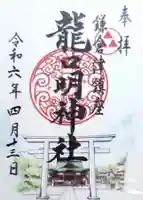 奉拝
鎌倉津鎮座
龍口明神社
令和六年四月十三日